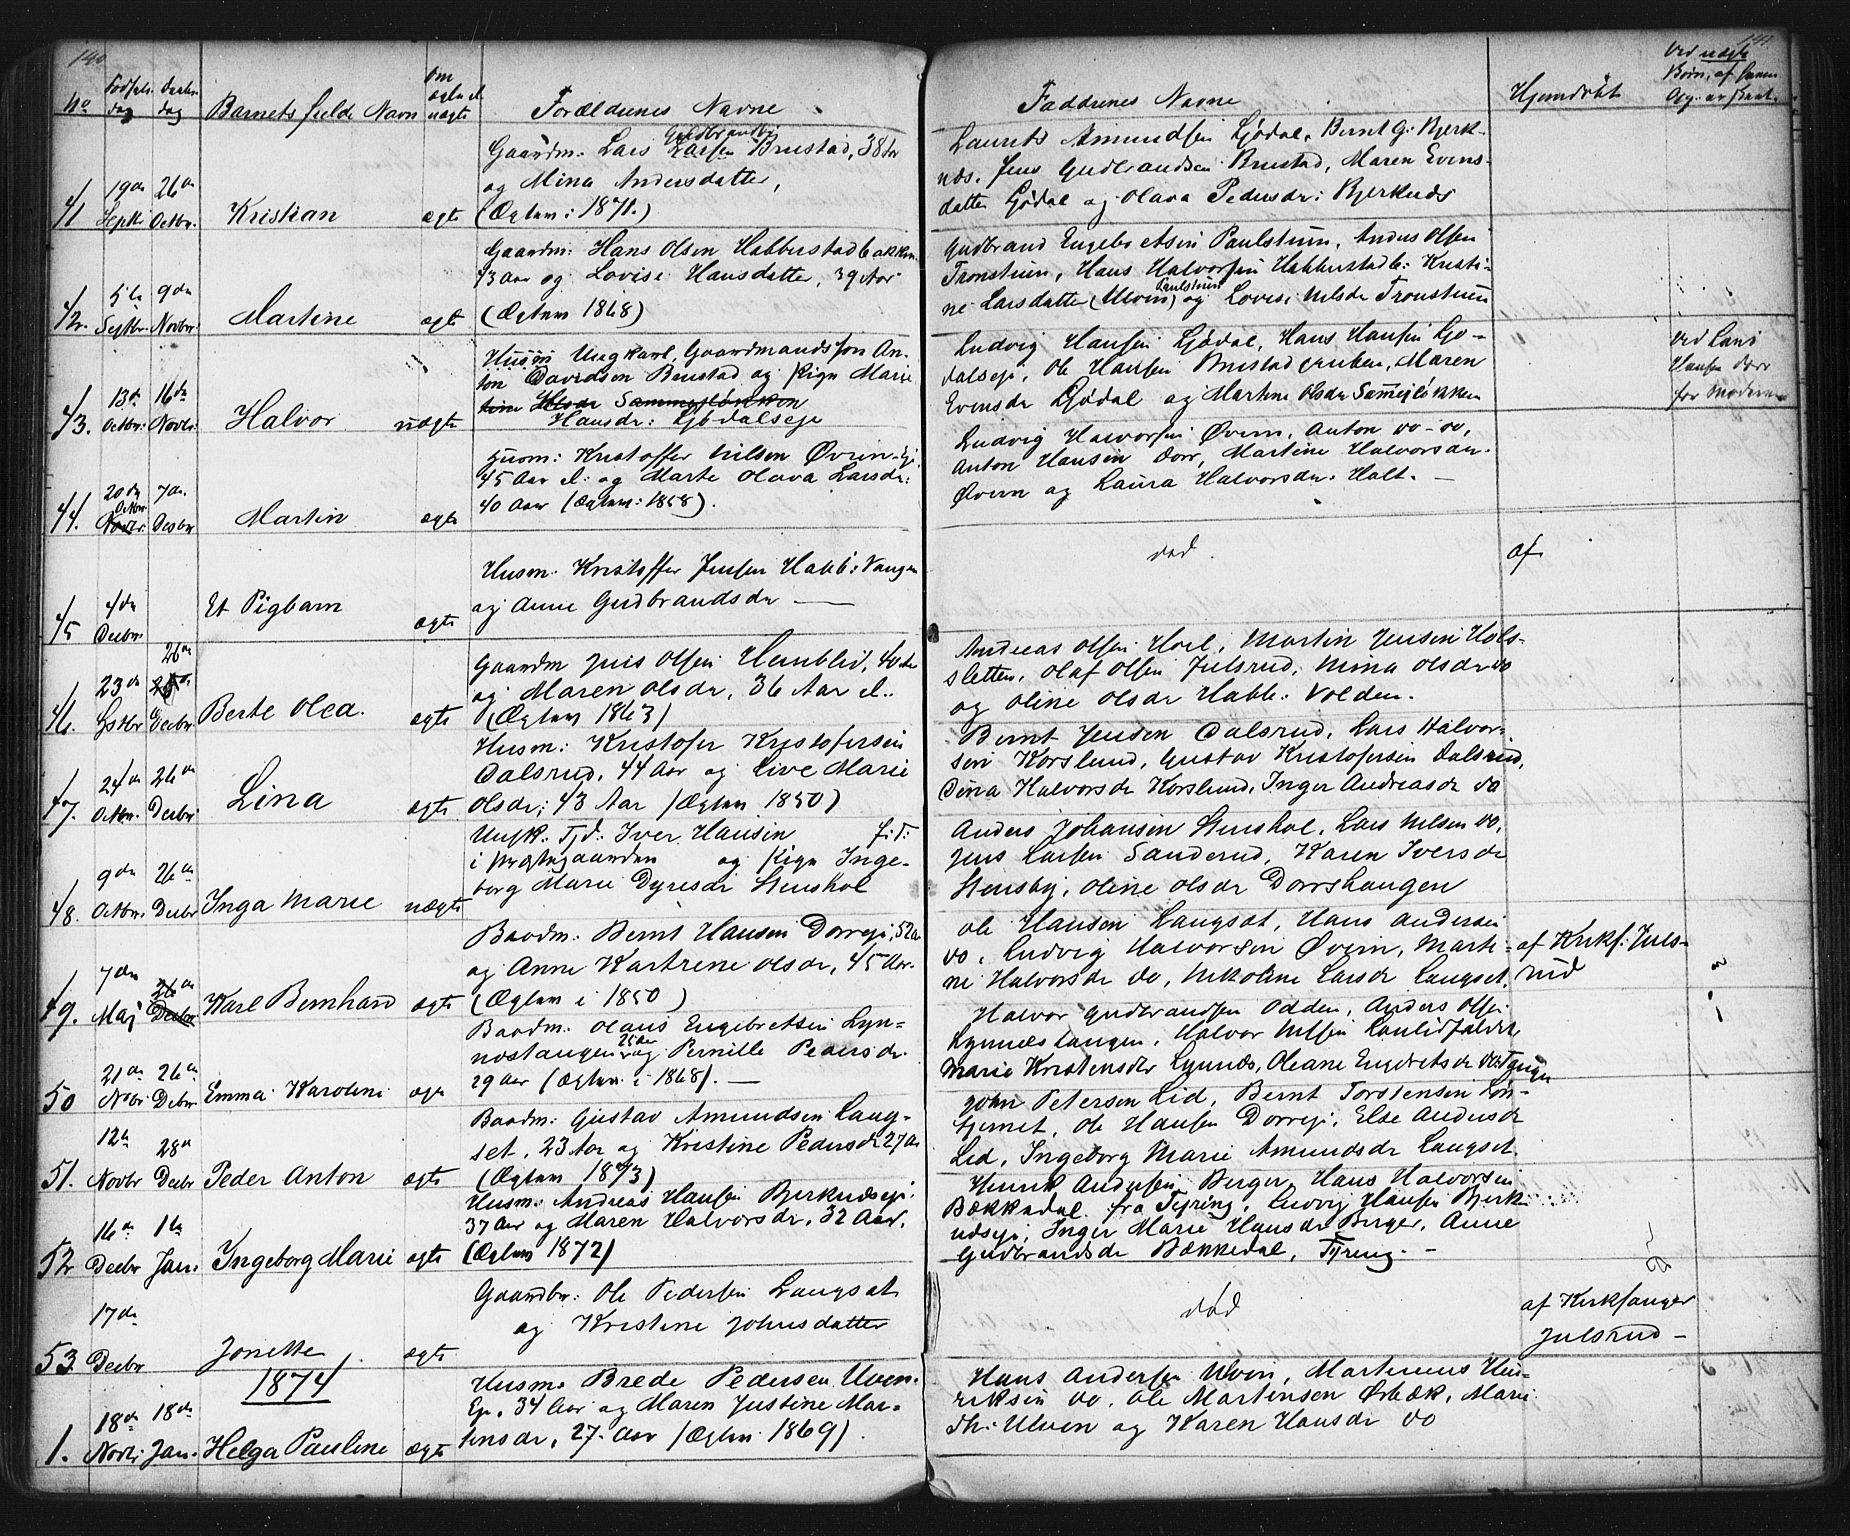 140
No Fødsels dag Daabs dag Barnets fulde Navn om ægte el. uægte Forældrenes Navne
41 19de Septbr. 26de Octbr. Kristian ægte
Gaardm. Lars Gudbrandsen Brustad, 38 Aar
og Mina Andersdatter,
(Ægtem: 1871.)
42. 5te Septbr. 9de Novbr. Martine ægte
Gaardm: Hans Olsen Habberstadbakken
43 Aar og Lovise Hansdatter, 39 Aar
(Ægtem 1868)
43. 13de Octbr: 16de Novbr: Halvor uægte
Husm Ungkarl, Gaardmandssøn An-
ton Davidsen Brustad og Pige Marie
tine Olsdr Sammesløkken
Hansdr: Ljødalseje
44. 20de Octbr Novbr: 7de Desbr Martin ægte
Husm: Kristoffer Nilsen Øvern-Ej.
45 Aar el: og Marte Olava Larsdr:
40 Aar (Ægtem: 1858).
45 4de Decbr Et Pigbarn ægte
Husm. Kristoffer Jensen Habb: Vangen
og Anne Gudbrandsdr —
46. 23de Septbr 26de Decbr Berte Olea. ægte
Gaardm Jens Olsen Henblid, 40 Aar
og Maren Olsdr, 36 Aar el..
(Ægtem 1863)
47. 24de Octbr. 26de Decbr Lina ægte
Husm: Kristofer Kristofersen
Dalsrud, 44 Aar og Live Marie
Olsdr; 43 Aar (Ægtem 1850)
48. 9de Octbr. 26de Decbr Inga Marie uægte
Ungk. Tjd: Iver Hansen f: T:
i Prestegaarden og Pige Inge-
borg Marie Dyresdr Stenshol
49. 7de Maj 26de Decbr Karl Bernhard ægte
Baadm: Bernt Hansen Dorreji, 52 Aar
og Anne Kartrine Olsdr, 45 Aar.
(Ægtem i 1850)
50 21de Novbr 26de Decbr Emma Karoline ægte
Baadm: Olaus Engebretsen Lyn-
nestangen 25 Aar og Pernille Pedersdr.
29 Aar (Ægtem. i 1868). —
51. 12te Novbr 28de Decbr Peder Anton ægte
Baadm: Gustav Amundsen Lang-
set, 23 Aar og Kristine Pedersdr 27 Aar
(Ægtem 1873)
52 16de Decbr 1te Jan. Ingeborg Marie ægte
Husm: Andreas Hansen Bjerknæseje
37 Aar og Maren Halvorsdr, 32 Aar.
(Ægtem 1872)
53. 17de Decbr Jonette ægte
Gaardbr: Ole Pedersen Langset
og Kristine Johnsdatter
1874
1. 18de Novbr. 18de Jan. Helga Pauline ægte
Husm. Brede Pedersen Ulven.
Ej., 34 Aar og Maren Justine Mar-
tinsdr, 27. Aar (Ægtem. 1869).
141.
Faddrenes Navne Hjemdøbt Ved uægte
Børn, af
Laurits Amundsen Ljødal, Bernt G: Bjerk-
næs. Jens Gudbrandsen Brustad, Maren Evens-
datter Ljødal og Olava Pedersdr: Bjerknæs
Gudbrand Engebretsen Paulstuen, Anders Olsen
Tronstuen, Hans Halvorsen Habberstadb: Kristi-
ne Larsdatter (Ulven) Paulstuen og Lovise Nilsdr Tronstuen
Ludvig Hansen Ljødal, Hans Hansen Ljø-
dalseje, Ole Hansen Brustadgruben, Maren
Evensdr Ljødal og Martine Olsdr Sammesløkken
Ved Lars
Hansen Dorr
for Moderen
Ludvig Halvorsen Øvern, Anton do-do,
Anton Hansen Dorr, Martine Halvorsdr.
Øvern og Laura Halvorsdr: Holt. —
død. af
Andreas Olsen Hoel, Martin Jensen Hols-
sletten, Olaf Olsen Julsrud, Nina Olsdr do
og Oline Olsdr Habb: Volden.
Bernt Jensen Dalsrud, Lars Halvor-
sen Korslund, Gustav Kristofersen Dalsrud,
Dina Halvorsdr Korslund, Inger Andreasdr do
Anders Johansen Stenshol, Lars Nilsen do,
Jens Larsen Sanderud, Karen Iversdr
Stensby, Oline Olsdr Dorrshaugen
Ole Hansen Langset, Hans Andersen
do, Ludvig Halvorsen Øvern, Marti-
ne Halvorsdr do, Nikoline Larsdr Langset.
af Kirkes: Juls-
rud
Halvor Gudbrandsen Odden, Anders Olsen
Lynnestangen, Halvor Nilsen
Marie Kristensdr Lynnæs, Oleane Engebretsdr Tangen
John Petersen Lid, Bernt Torstensen Løn-
tjernet, Ole Hansen Dorreji, Else Andersdr
Lid, Ingeborg Marie Amundsdr Langset.
Henrik Andersen Berger, Hans Halvorsen
Bækkedal fra Fejring, Ludvig Hansen Bjerk-
næseje, Inger Marie Hansdr Berger, Anne
Gudbrandsdr Bækkedal, Fejring. —
død
af Kirksanger
Julsrud —
Hans Andersen Ulven, Martinus Hen-
riksen do, Ole Martinsen Ørbæk, Mari
Th: Ulven og Karen Hansdr do